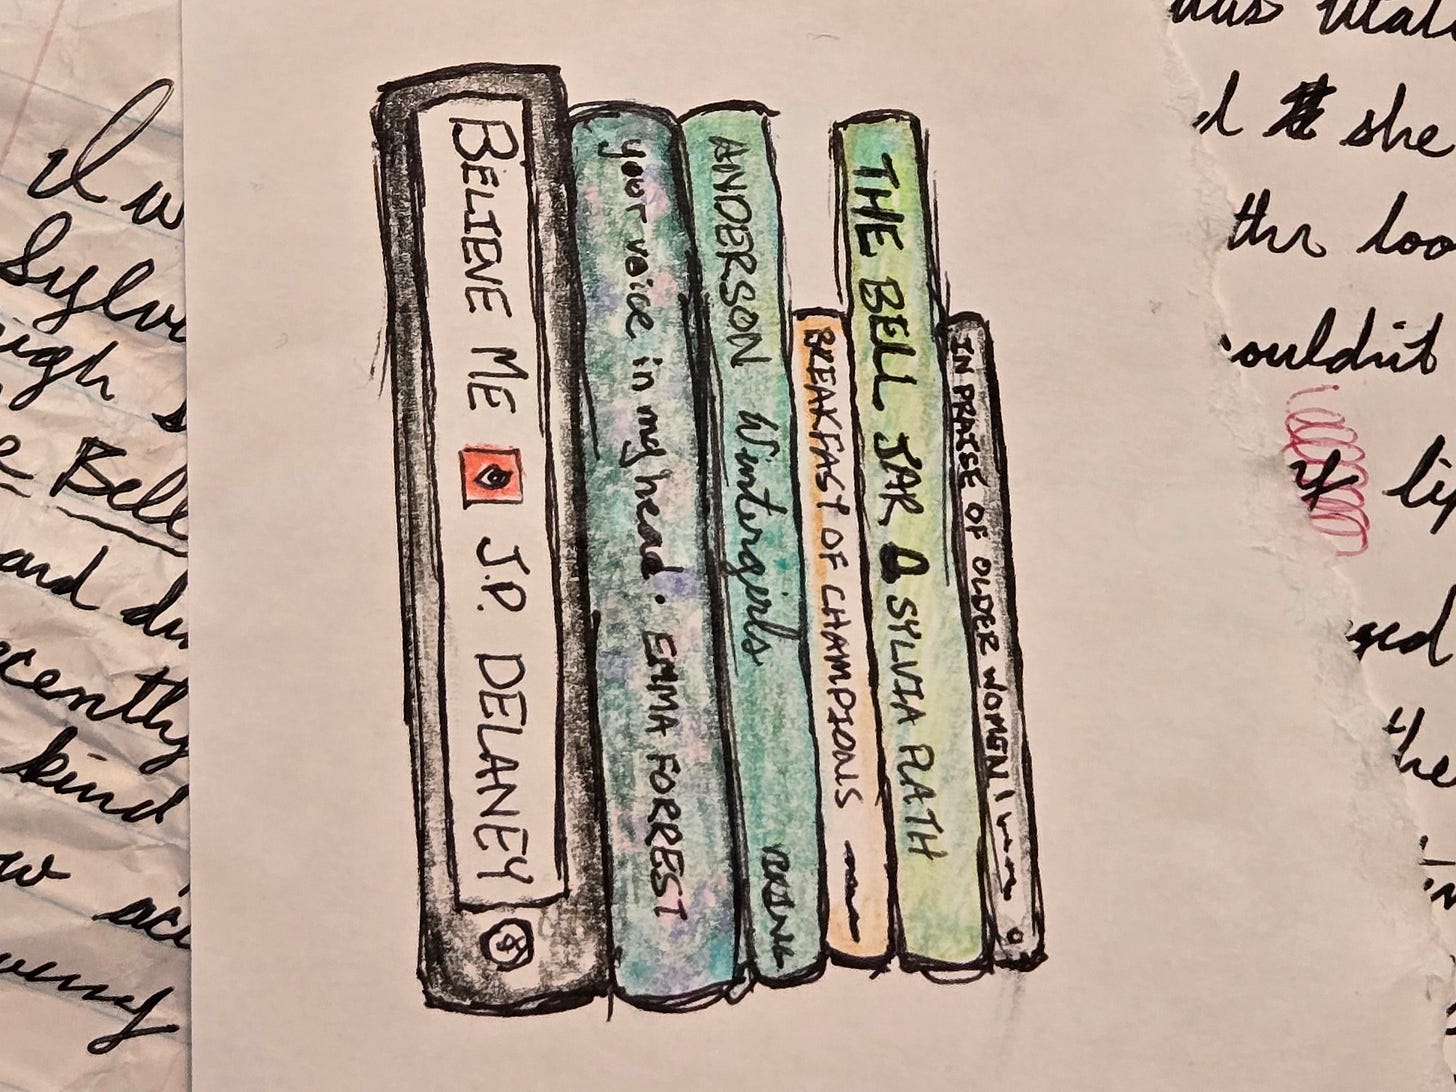 I w
Sylv
igh s
e Bell
and du
cently
kind
w acc
BELIEVE ME J.P. DELANEY
your voice in my head. EMMA FORREST
ANDERSON Wintergirls VIKING
BREAKFAST OF CHAMPIONS
THE BELL JAR SYLVIA PLATH
IN PRAISE OF OLDER WOMEN
d she
thr loo
ouldn't
y lip
ged
the